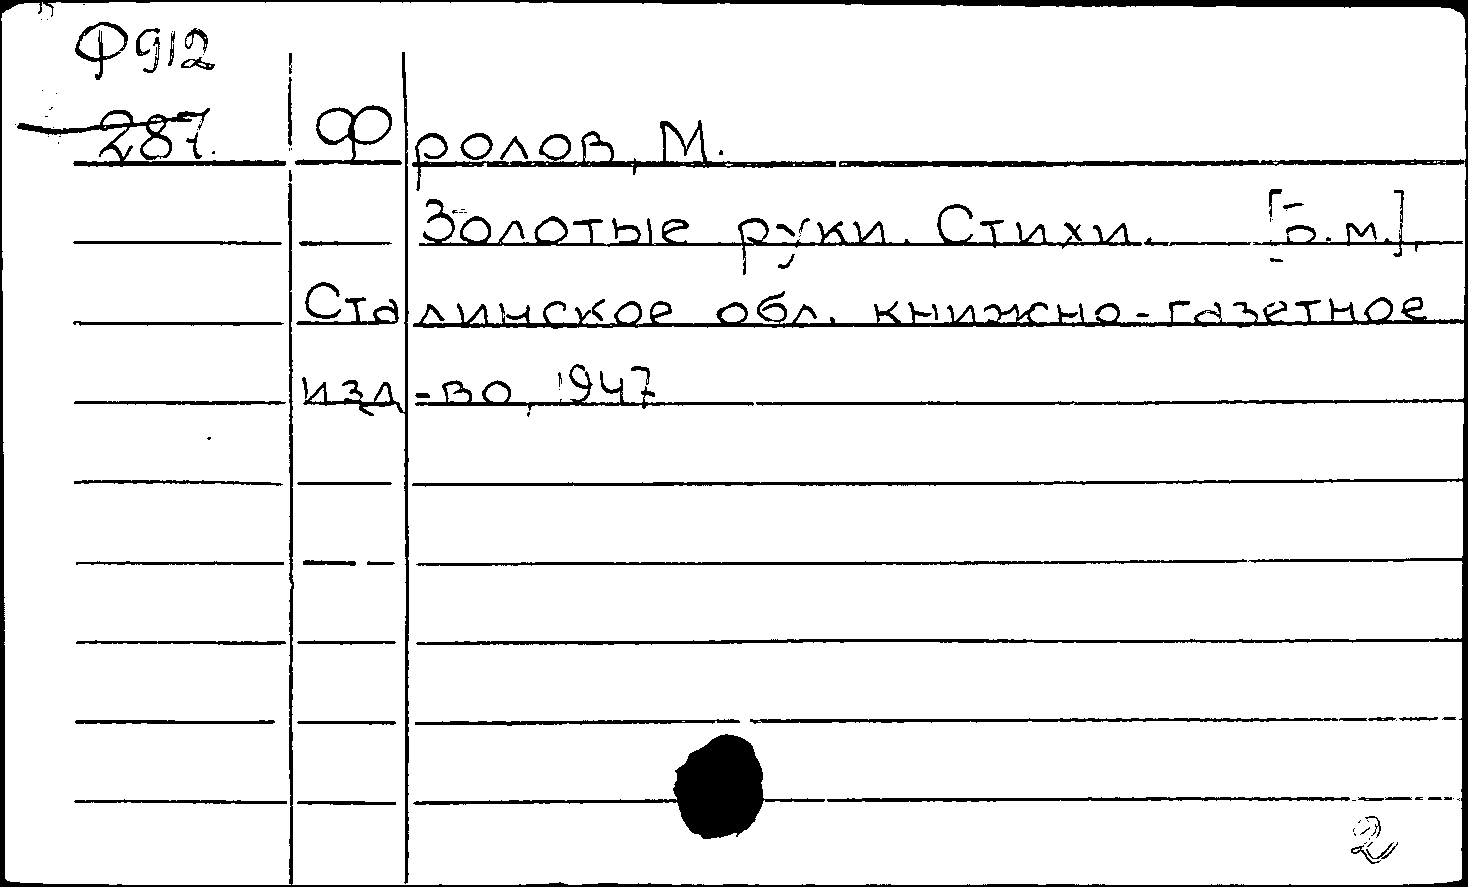 Ф912
287. Фролов, М.
Золотые руки. Стихи. [Б.м.],
Сталинское обл. книжно-газетное
изд-во, 1947
2